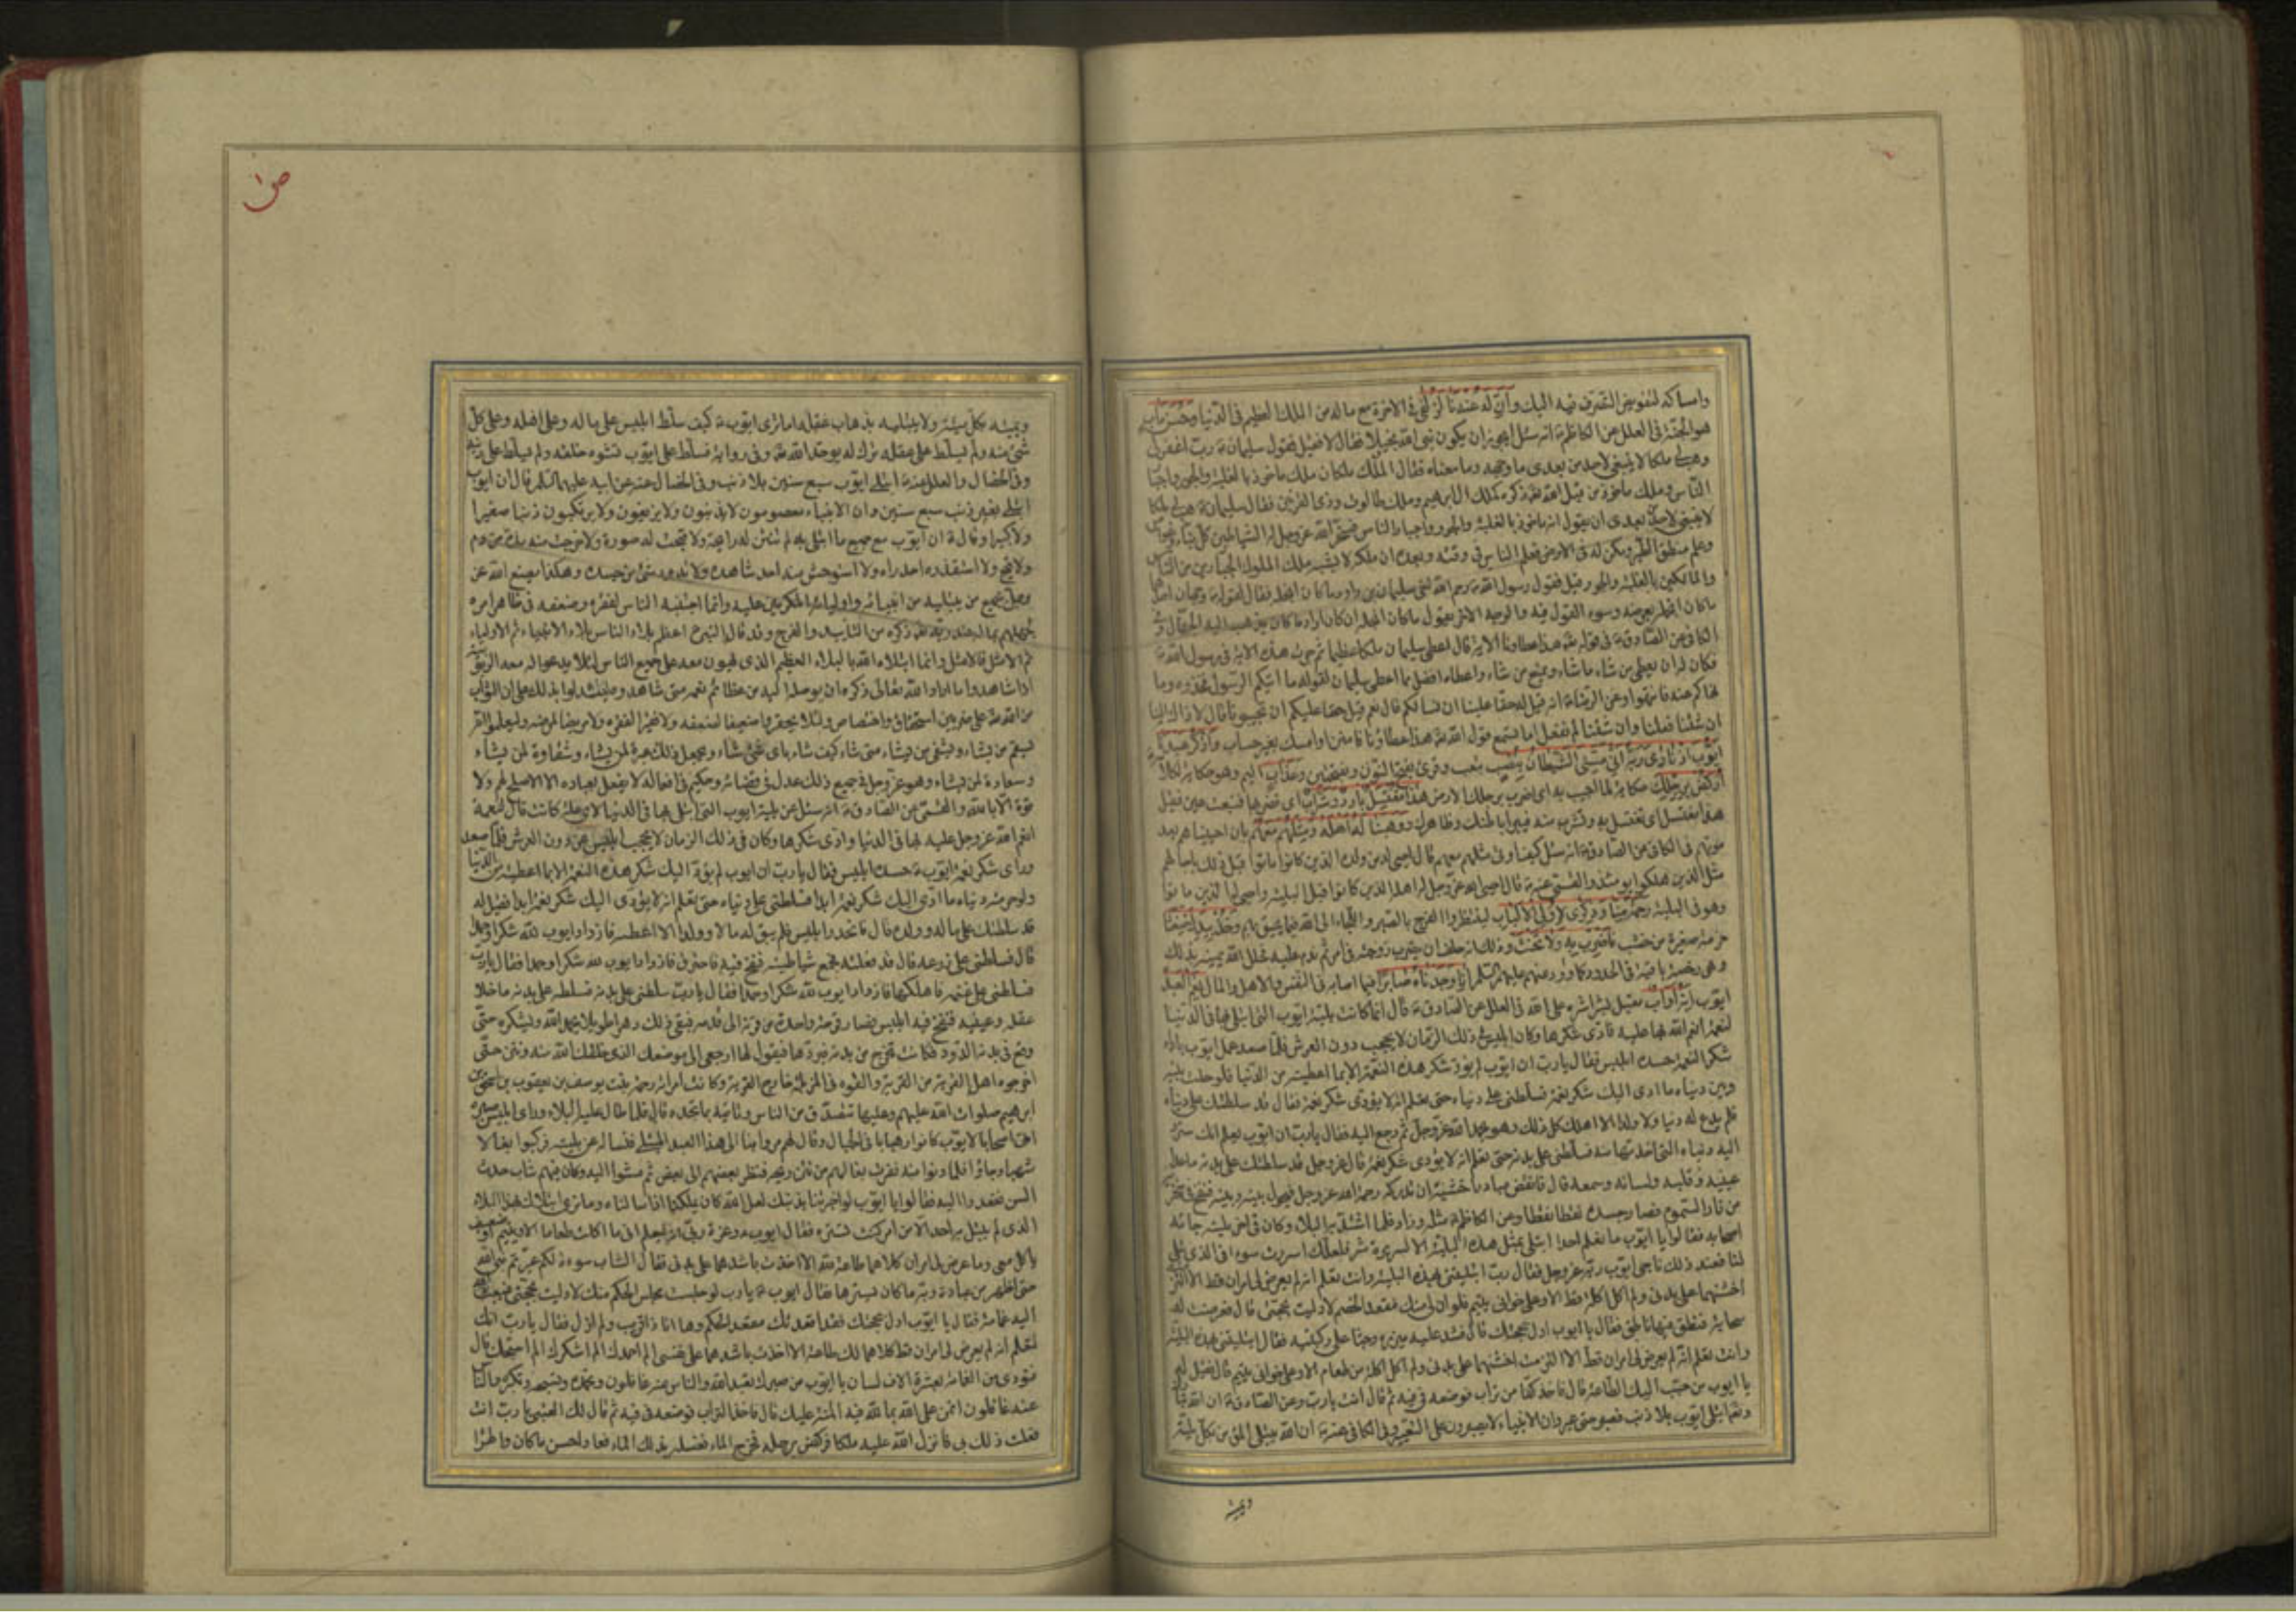 وامساكه لتفويض التصرف فيه اليك وان له عندنا لزلفى في الاخرة مع ماله من الملك العظيم في الدنيا وحسن ماب
هو الجنة في العلل عن الكاظم ع انه سئل ايجوز ان يكون نبي الله بخيلا فقال لا فقيل فقول سليمان ع رب اغفر لي
وهب لي ملكا لا ينبغي لاحد من بعدي ما وجهه وما معناه فقال الملك ملكان ملك ماخوذ بالغلبة والجور واجبار
الناس وملك ماخوذ من قبل الله تعه ذكره كملك ال ابرهيم وملك طالوت وذي القرنين فقال سليمان ع هب لي ملكا
لا ينبغي لاحد من بعدي ان يقول انه ماخوذ بالغلبة والجور واجبار الناس فسخر الله عز وجل له
وعلم منطق الطير ومكن له في الارض فعلم الناس في وقته وبعده ان ملكه لا يشبه ملك الملوك الجبارين من الناس
والمالكين بالغلبة والجور قيل فقول رسول الله ص رحم الله اخي سليمان بن داود ما كان ابخله فقال لقوله ص وجهان احدهما
ما كان ابخله بعرضه وسوء القول فيه والوجه الاخر يقول ما كان ابخله ان كان اراد ما كان يذهب اليه الجهال
الكافي عن الصادق ع في قوله تعه هذا عطاؤنا الاية قال اعطى سليمان ملكا عظيما ثم جرت هذه الاية في رسول الله ص
فكان له ان يعطي من شاء ما شاء ويمنع من شاء واعطاه افضل مما اعطى سليمان لقوله ما اتيكم الرسول فخذوه وما
نهاكم عنه فانتهوا وعن الرضا ع انه قيل له حقا علينا ان نسالكم قال نعم قيل حقا عليكم ان تجيبونا قال لا ذاك الينا
ان شئنا فعلنا وان شئنا لم نفعل اما تسمع قول الله تعه هذا عطاؤنا فامنن او امسك بغير حساب واذكر عبدنا
ايوب اذ نادى ربه اني مسني الشيطان بنصب بتعب وقرئ بفتح النون وبفتحتين وعذاب اليم وهو حكاية لكلامه
اركض برجلك حكاية لما اجيب به اي اضرب برجلك الارض هذا مغتسل بارد وشراب اي فضربها فنبعت عين فقيل
هذا مغتسل اي تغتسل به وتشرب منه فيبرأ باطنك وظاهرك ووهبنا له اهله ومثلهم معهم بان احييناهم بعد
موتهم في الكافي عن الصادق ع انه سئل كيف اوتي مثلهم معهم قال احيى له من ولده الذين كانوا ماتوا قبل ذلك باجالهم
مثل الذين هلكوا يومئذ والقمي عنه ع قال احيى الله عز وجل له اهله الذين كانوا قبل البلية واحيى له الذين ماتوا
وهو في البلية رحمة منا وذكرى لاولي الالباب لينتظروا الفرج بالصبر واللجاء الى الله فيما يحيق بهم وخذ بيدك ضغثا
حزمة صغيرة من خشب فاضرب به ولا تحنث وذلك انه حلف ان يضرب زوجته في امر ثم ندم عليه فحلل الله يمينه بذلك
وهي رخصة باقية في الحدود كما ورد عنهم عليهم السلم انا وجدناه صابرا فيما اصابه في النفس والاهل والمال نعم العبد
ايوب انه اواب مقبل بشراشره على الله في العلل عن الصادق ع قال انما كانت بلية ايوب التي ابتلي بها في الدنيا
لنعمة انعم الله بها عليه فادى شكرها وكان ابليس في ذلك الزمان لا يحجب دون العرش فلما صعد عمل ايوب باداء
شكر النعمة حسده ابليس فقال يا رب ان ايوب لم يؤد شكر هذه النعمة الا بما اعطيته من الدنيا فلو حلت بينه
وبين دنياه ما ادى اليك شكر نعمة فسلطني على دنياه حتى تعلم انه لا يؤدي شكر نعمة فقال قد سلطتك على دنياه
فلم يدع له دنيا ولا ولدا الا اهلك كل ذلك وهو يحمد الله عز وجل ثم رجع اليه فقال يا رب ان ايوب يعلم انك سترد
اليه دنياه التي اخذتها منه فسلطني على بدنه حتى تعلم انه لا يؤدي شكر نعمة قال عز وجل قد سلطتك على بدنه ما عدا
عينيه وقلبه ولسانه وسمعه قال فانقض مبادرا خشية ان تدركه رحمة الله عز وجل فيحول بينه وبينه فنفخ في منخريه
من نار السموم فصار جسده نقطا نقطا وعن الكاظم ع مثله وزاد فلما اشتد به البلاء وكان في اخر بليته جائه
اصحابه فقالوا يا ايوب ما نعلم احدا ابتلي بمثل هذه البلية الا لسريرة شر فلعلك اسررت سوء في الذي تبدي
لنا فعند ذلك ناجى ايوب ربه عز وجل فقال رب ابتليتني بهذه البلية وانت تعلم انه لم يعرض لي امران قط الا الزمت
اخشنهما على بدني ولم اكل اكلة قط الا وعلى خواني يتيم فلو ان لي منك مقعد الخصم لادليت بحجتي قال فعرضت له
سحابة فنطق فيها ناطق فقال يا ايوب ادل بحجتك قال فشد عليه ميزره وجثا على ركبتيه فقال ابتليتني بهذه البلية
وانت تعلم انه لم يعرض لي امران قط الا الزمت اخشنهما على بدني ولم اكل اكلة من طعام الا وعلى خواني يتيم قال فقيل له
يا ايوب من حبب اليك الطاعة قال فاخذ كفا من تراب فوضعه في فيه ثم قال انت يا رب وعن الصادق ع ان الله تبارك
وتعه ابتلى ايوب بلا ذنب فصبر حتى عير وان الانبياء لا يصبرون على التعيير وفي الكافي عنه ع ان الله يبتلي المؤمن بكل بلية
ويميته
ص
ويميته بكل ميتة ولا يبتليه بذهاب عقله اما ترى ايوب ع كيف سلط ابليس على ماله وعلى اهله وعلى كل
شئ منه ولم يسلط على عقله ترك له يوحد الله به وفي رواية فسلط على ايوب فشوه خلقه ولم يسلط على دينه
وفي الخصال والعلل عنه ع ابتلي ايوب سبع سنين بلا ذنب وفي الخصال عنه عن ابيه عليهما السلم قال ان ايوب
ابتلي بغير ذنب سبع سنين وان الانبياء معصومون لا يذنبون ولا يزيغون ولا يرتكبون ذنبا صغيرا
ولا كبيرا وقال ع ان ايوب مع جميع ما ابتلي به لم تنتن له رائحة ولا قبحت له صورة ولا خرجت منه مدة من دم
ولا قيح ولا استقذره احد راه ولا استوحش منه احد شاهده ولا تدود شئ من جسده وهكذا يصنع الله عز
وجل بجميع من يبتليه من انبيائه واوليائه المكرمين عليه وانما اجتنبه الناس لفقره وضعفه في ظاهر امره
لجهلهم بما له عند ربه تعه ذكره من التاييد والفرج وقد قال النبي ص اعظم الناس بلاء الانبياء ثم الاولياء
ثم الامثل فالامثل وانما ابتلاه الله بالبلاء العظيم الذي يهون معه على جميع الناس لئلا يدعوا له معه الربوبية
اذا شاهدوا ما اراد الله تعالى ذكره ان يوصله اليه من عظائم نعمه متى شاهدوه ليستدلوا بذلك على ان الثواب
من الله تعه على ضربين استحقاق واختصاص ولئلا يحقروا ضعيفا لضعفه ولا فقيرا لفقره ولا مريضا لمرضه وليعلموا انه
يسقم من يشاء ويشفي من يشاء متى شاء كيف شاء باي شئ شاء ويجعل ذلك عبرة لمن يشاء وشقاوة لمن يشاء
وسعادة لمن يشاء وهو عز وجل في جميع ذلك عدل في قضائه وحكيم في افعاله لا يفعل بعباده الا الاصلح لهم ولا
قوة الا بالله والقمي عن الصادق ع انه سئل عن بلية ايوب التي ابتلي بها في الدنيا لاي علة كانت قال لنعمة
انعم الله عز وجل عليه بها في الدنيا وادى شكرها وكان في ذلك الزمان لا يحجب ابليس من دون العرش فلما صعد
وراى شكر نعمة ايوب ع حسده ابليس فقال يا رب ان ايوب لم يؤد اليك شكر هذه النعمة الا بما اعطيته من الدنيا
ولو حرمته دنياه ما ادى اليك شكر نعمة ابدا فسلطني على دنياه حتى تعلم انه لا يؤدي اليك شكر نعمة ابدا فقيل له
قد سلطتك على ماله وولده قال فانحدر ابليس فلم يبق له مالا وولدا الا اعطبه فازداد ايوب لله شكرا وحمدا
قال فسلطني على زرعه قال قد فعلت فجمع شياطينه فنفخ فيه فاحترق فازداد ايوب لله شكرا وحمدا فقال يا رب
فسلطني على غنمه فاهلكها فازداد ايوب لله شكرا وحمدا فقال يا رب سلطني على بدنه فسلطه على بدنه ما خلا
عقله وعينيه فنفخ فيه ابليس فصار قرحة واحدة من قرنه الى قدمه فبقي في ذلك دهرا طويلا يحمد الله ويشكره حتى
وقع في بدنه الدود فكانت تخرج من بدنه فيردها فيقول لها ارجعي الى موضعك الذي خلقك الله منه ونتن حتى
اخرجوه اهل القرية من القرية والقوه في المزبلة خارج القرية وكانت امراته رحمة بنت يوسف بن يعقوب بن اسحق بن
ابرهيم صلوات الله عليهم وعليها تتصدق من الناس وتاتيه بما تجده قال فلما طال عليه البلاء وراى ابليس صبره
اتى اصحابا لايوب كانوا رهبانا في الجبال وقال لهم مروا بنا الى هذا العبد المبتلى فنساله عن بليته فركبوا بغالا
شهبا وجاؤا فلما دنوا منه نفرت بغالهم من نتن ريحه فنظر بعضهم الى بعض ثم مشوا اليه وكان فيهم شاب حدث
السن فقعدوا اليه فقالوا يا ايوب لو اخبرتنا بذنبك لعل الله كان يهلكنا اذا سالناه وما نرى ابتلاك بهذا البلاء
الذي لم يبتل به احد الا من امر كنت تستره فقال ايوب ع وعزة ربي انه ليعلم اني ما اكلت طعاما الا ويتيم او ضعيف
ياكل معي وما عرض لي امران كلاهما طاعة لله الا اخذت باشدهما على بدني فقال الشاب سوءة لكم عيرتم نبي الله
حتى اظهر من عبادة ربه ما كان يسترها فقال ايوب ع يا رب لو جلست مجلس الحكم منك لادليت بحجتي فبعث الله
اليه غمامة فقال يا ايوب ادل بحجتك فقد اقعدتك مقعد الحكم وها انا ذا قريب ولم ازل فقال يا رب انك
لتعلم انه لم يعرض لي امران قط كلاهما لك طاعة الا اخذت باشدهما على نفسي الم احمدك الم اشكرك الم اسبحك قال
فنودي من الغمامة بعشرة الاف لسان يا ايوب من صيرك تعبد الله والناس عنه غافلون وتحمده وتسبحه وتكبره والناس
عنه غافلون اتمن على الله بما لله فيه المنة عليك قال فاخذ التراب فوضعه في فيه ثم قال لك العتبى يا رب انت
فعلت ذلك بي فانزل الله عليه ملكا فركض برجله فخرج الماء فغسله بذلك الماء فعاد احسن ما كان واطرأ